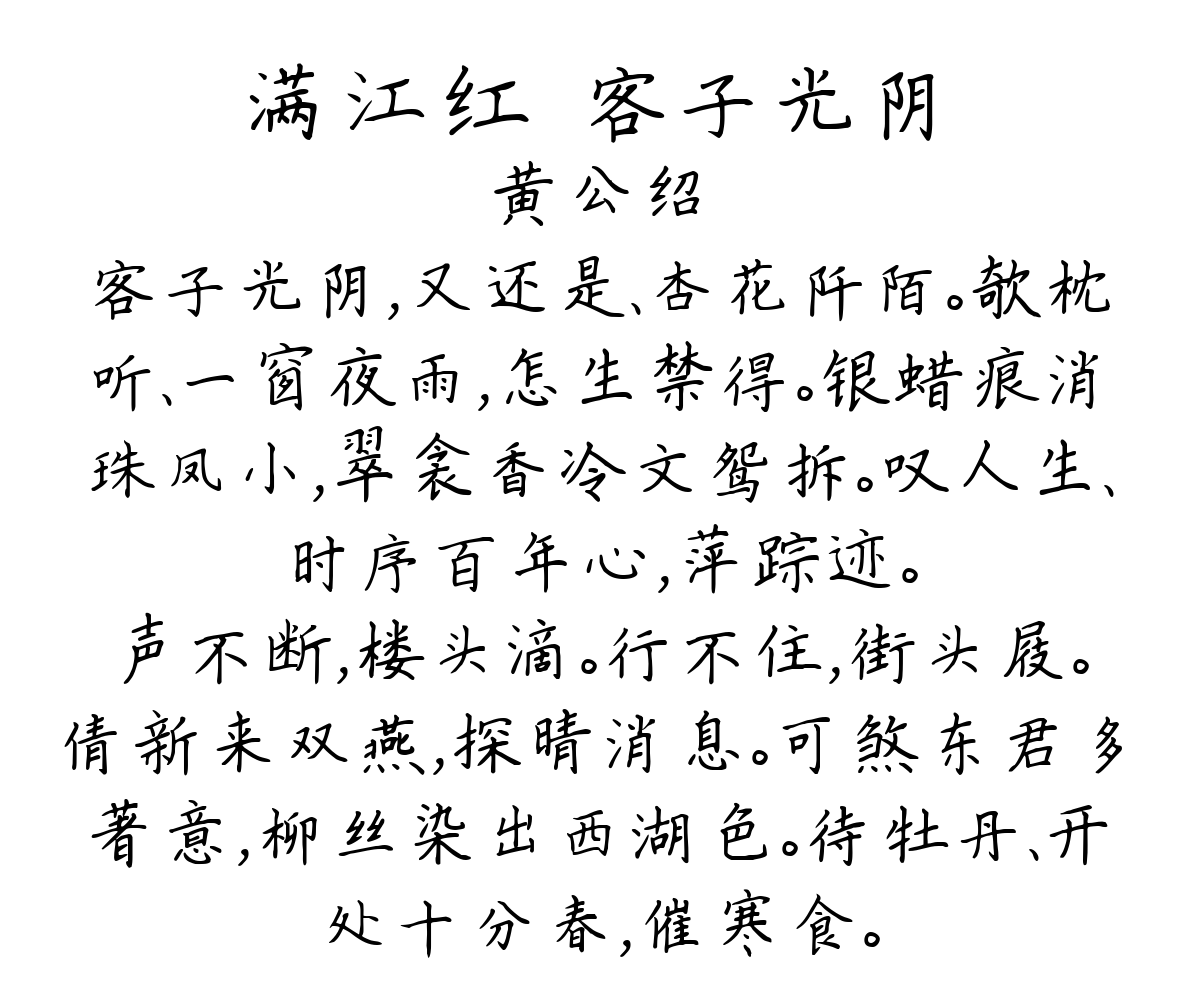 满江红 客子光阴
黄公绍
客子光阴,又还是、杏花阡陌。欹枕
听、一窗夜雨,怎生禁得。银蜡痕消
珠凤小,翠衾香冷文鸳拆。叹人生、
时序百年心,萍踪迹。
声不断,楼头滴。行不住,街头屐。
倩新来双燕,探晴消息。可煞东君多
著意,柳丝染出西湖色。待牡丹、开
处十分春,催寒食。